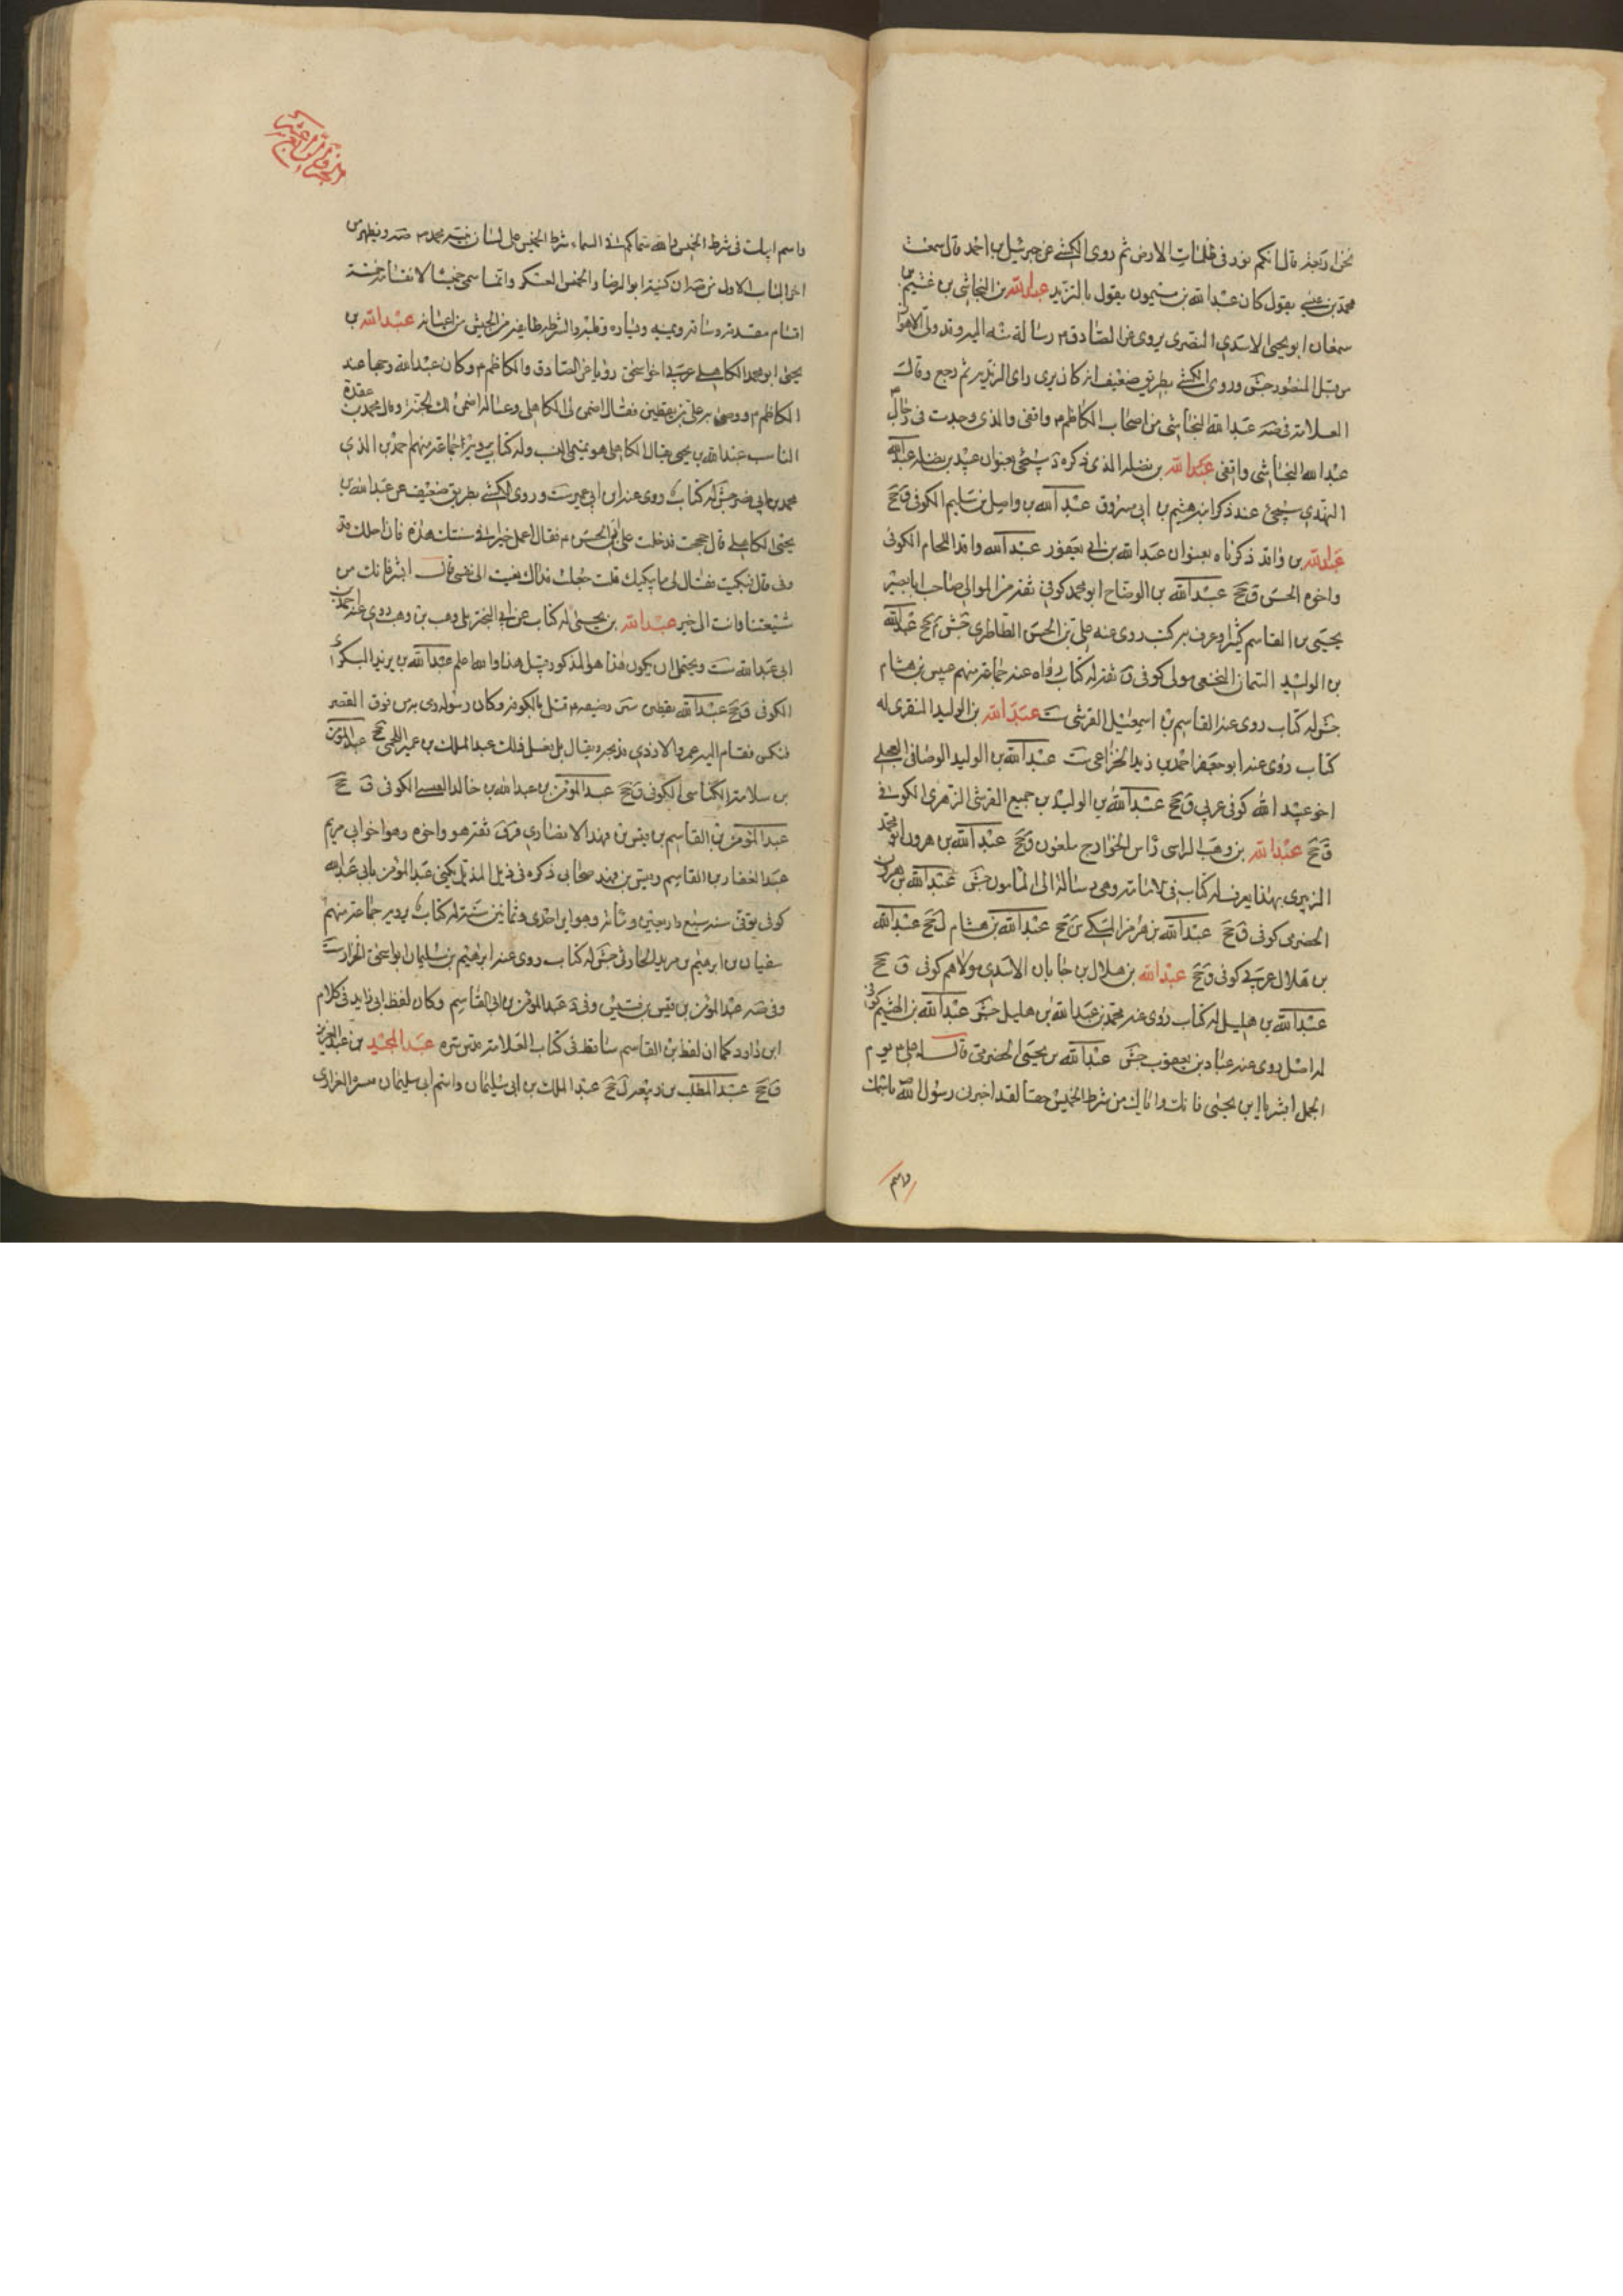 نحن اربعة قال انكم نور فى ظلمات الارض ثم روى الكشى عن جبرئيل بن احمد قال سمعت
محمد بن عيسى يقول كان عبدالله بن ميمون يقول بالتزيد عبدالله بن النجاشى بن غنيم بن
سمعان ابو بجير الاسدى النصرى يروى عن الصادق رسالة منه اليه وقد ولى الاهواز
من قبل المنصور جش وروى الكشى بطريق ضعيف انه كان يرى راى الزيديه ثم رجع وقال
العلامة فى ضه عبدالله النجاشى من اصحاب الكاظم واقفى والذى وجدت فى رجال
عبدالله النجاشى واقفى عبدالله بن نضله الذى ذكره سيجئ بعنوان عبيد بن نضله عبدالله
النهدى سيجئ عند ذكر ابنه هيثم بن ابى مسروق عبدالله بن واصل بن سليم الكوفى ق جخ
عبدالله بن واقد ذكرناه بعنوان عبدالله بن ابى يعفور عبدالله واقد اللحام الكوفى
واخوه الحسن ق جخ عبدالله بن الوضاح ابو محمد كوفى ثقة من الموالى صاحب ابا بصير
يحيى بن القاسم كثيرا وعرف به له كتب روى عنه على بن الحسن الطاطرى جش جخ عبدالله
بن الوليد السمان النخعى مولى كوفى ق ثقة له كتاب رواه عنه جماعة منهم عبيس بن هشام
جش له كتاب روى عنه القاسم بن اسمعيل القرشى ست عبدالله بن الوليد المنقرى له
كتاب روى عنه ابو جعفر احمد بن زيد الخزاعى ست عبدالله بن الوليد الوصافى العجلى
اخو عبيد الله كوفى عربى ق جخ عبدالله بن الوليد بن جميع القرشى الزهرى الكوفى
ق جخ عبدالله بن وهب الراسى راس الخوارج ملعون ى جخ عبدالله بن هرون ابو محمد
الزبيرى بهذا يعرف له كتاب فى الامامة وهى رسالة الى المامون جش عبدالله بن هرون
الحضرمى كوفى ق جخ عبدالله بن هرمز المكى ين جخ عبدالله بن هشام ل جخ عبدالله
بن هلال عربى كوفى ق جخ عبدالله بن هلال بن جابان الاسدى مولاهم كوفى ق جخ
عبدالله بن هليل له كتاب روى عنه محمد بن عبدالله بن هليل جش عبدالله بن الهيثم كوفى
له اصل روى عنه عباد بن يعقوب جش عبدالله بن يحيى الحضرمى قال له على يوم
الجمل ابشر يا ابن يحيى فانك واباك من شرطة الخميس حقا لقد اخبرنى رسول الله باسمك
واسم
الجزو الرابع عشر
واسم ابيك فى شرطة الخميس والله سماكم فى السماء شرطة الخميس على لسان نبيه محمد ضه ويظهر من
اخر الباب الاول من ضه ان كنيته ابو الرضا والخميس العسكر وانما سمى خميسا لانقسامه خمسة
اقسام مقدمة وساقة وميمنه ويساره وقلب والشرطه طايفه من الجيش من اعيانه عبدالله بن
يحيى ابو محمد الكاهلى عربى اخو اسحق رويا عن الصادق والكاظم وكان عبدالله وجها عند
الكاظم ووصى به على بن يقطين فقال اضمن لى الكاهلى وعياله اضمن لك الجنة وقال محمد بن عقدة
الناسب عبدالله بن يحيى يقال الكاهلى هو تميمى النسب وله كتاب يرويه جماعة منهم احمد بن
محمد بن ابى نصر جش له كتاب روى عنه ابن ابى عمير ست وروى الكشى بطريق ضعيف عن عبدالله بن
يحيى الكاهلى قال حججت فدخلت على ابى الحسن فقال اعمل خيرا فى سنتك هذه فان اجلك قد
دنى قال فبكيت فقال لى ما يبكيك قلت جعلت فداك نعيت الى نفسى قال ابشر فانك من
شيعتنا وانت الى خير عبدالله بن يحيى له كتاب عن ابى البخترى وهب بن وهب روى عنه احمد بن
ابى عبدالله ست ويحتمل ان يكون هذا هو المذكور قبل هذا والله اعلم عبدالله بن يزيد البكرى
الكوفى ق جخ عبدالله يقطر سين رضيعه قتل بالكوفه وكان رسوله رمى به من فوق القصر
فتكسر فقام اليه عمرو الازدى فذبحه ويقال بل فعل ذلك عبد الملك بن عمير اللخمى جخ عبد المؤمن
بن سلامة الكناسى الكوفى ق جخ عبد المؤمن بن عبدالله بن خالد العبسى الكوفى ق جخ
عبد المؤمن بن القاسم بن قيس بن قهد الانصارى ق ثقة هو واخوه وهو اخو ابى مريم
عبد الغفار بن القاسم وقيس بن قهد صحابى ذكره فى ذيل المذيل يكنى عبد المؤمن بابى عبدالله
كوفى توفى سنه سبع واربعين ومائه وهو ابن احدى وثمانين سنة له كتاب يرويه جماعة منهم
سفيان بن ابرهيم بن مزيد الحارثى جش له كتاب روى عنه ابرهيم بن سليمان ابو اسحق الخزاز ست
وفى ضه عبد المؤمن بن قيس بن قيس وفى د عبد المؤمن بن ابى القاسم وكان لفظ ابى زايد فى كلام
ابن داود كما ان لفظ بن القاسم ساقط فى كتاب العلامة قدس سره عبد المجيد بن عبد العزيز
ق جخ عبد المطلب بن ربيعه ل جخ عبد الملك بن ابى سليمان واسم ابى سليمان ميسره الفزارى